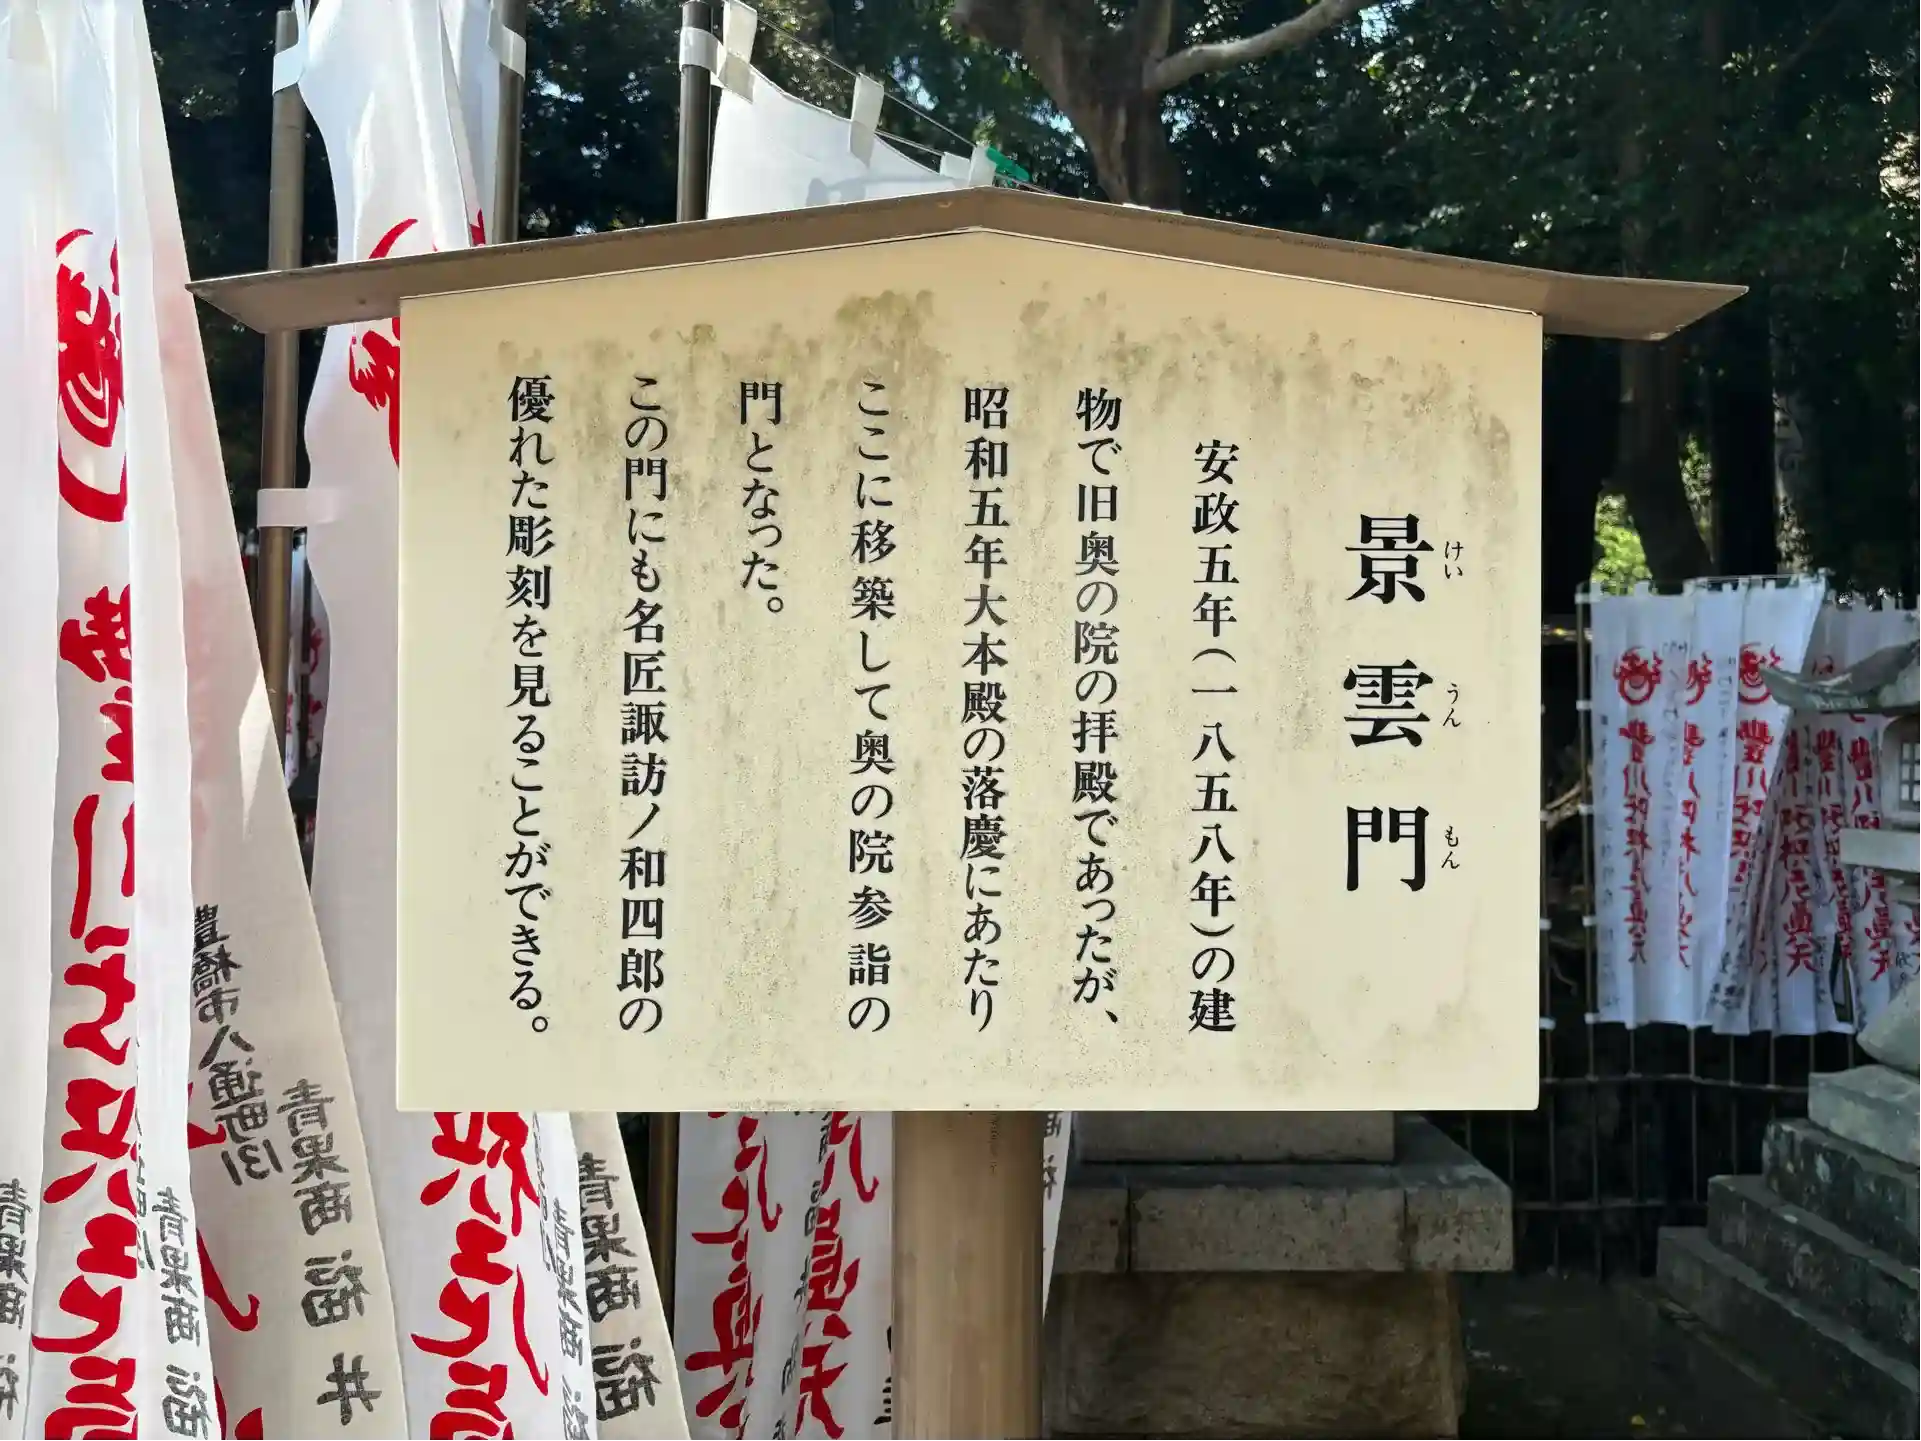 景雲門
けい
うん
もん
安政五年(一八五八年)の建
物で旧奥の院の拝殿であったが、
昭和五年大本殿の落慶にあたり
ここに移築して奥の院参詣の
門となった。
この門にも名匠諏訪ノ和四郎の
優れた彫刻を見ることができる。
豊橋市八通町131
青果商 福井
青果商 福